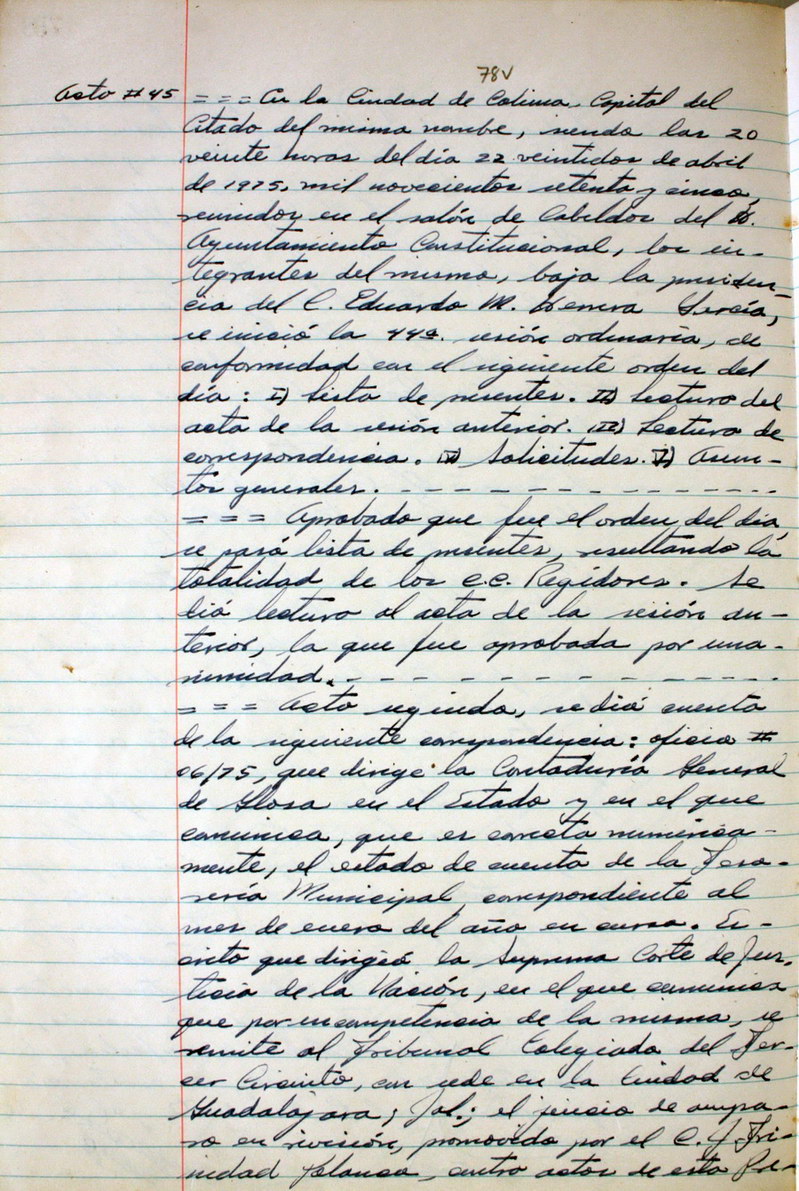 78v
Acta # 45 = = = En la Ciudad de Colima, Capital del
Estado del mismo nombre, siendo las 20
veinte horas del día 22 veintidos de abril
de 1975, mil novecientos setenta y cinco,
reunidos en el salón de Cabildos del H.
Ayuntamiento Constitucional, los in-
tegrantes del mismo, bajo la presiden-
cia del C. Eduardo M. Herrera García,
se inició la 44a. sesión ordinaria, de
conformidad con el siguiente orden del
día: I) Lista de presentes. II) Lectura del
acta de la sesión anterior. III) Lectura de
correspondencia. IV) Solicitudes. V) Asun-
tos generales. - - - - - - - - - - - - - -
= = = Aprobado que fue el orden del día,
se pasó lista de presentes, resultando la
totalidad de los C.C. Regidores. Se
dió lectura al acta de la sesión an-
terior, la que fue aprobada por una-
nimidad. - - - - - - - - - - - - - - -
= = = Acto seguido, se dió cuenta
de la siguiente correspondencia: oficio #
06/75, que dirige la Contaduría General
de Glosa en el Estado y en el que
comunica, que es correcta numérica-
mente, el estado de cuenta de la Teso-
rería Municipal, correspondiente al
mes de enero del año en curso. Es-
crito que dirigió la Suprema Corte de Jus-
ticia de la Nación, en el que comunica
que por incompetencia de la misma, se
remite al Tribunal Colegiado del Ter-
cer Circuito, con sede en la Ciudad de
Guadalajara, Jal.; el juicio de ampa-
ro en revisión, promovido por el C. J. Tri-
nidad Polanco, contra actos de esta Pre-